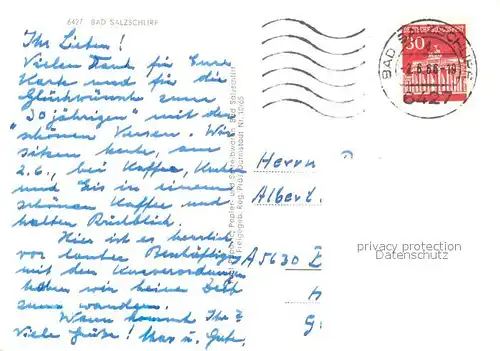 6427 BAD SALZSCHLIRF
Ihr Lieben!
Vielen Dank für Eure
Karte und für die
Glückwünsche zum
"30jährigen" mit den
schönen Versen. Wir
sitzen heute, am
2.6., bei Kaffee, Kuchen
und Eis in einem
schönen Kaffee und
halten Rückblick.
Hier ist es herrlich
vor lauter
mit den Kurverordnungen
haben wir keine Zeit
zum wandern.
Wann kommt Ihr?
Viele Grüße! u.
Papier- und Schreibwaren, Bad Salzschlirf
Freigegeb. Reg. Präs. Darmstadt Nr.
30
BAD SALZSCHLIRF
6427
Herrn
Albert
A5630
privacy protection
Datenschutz